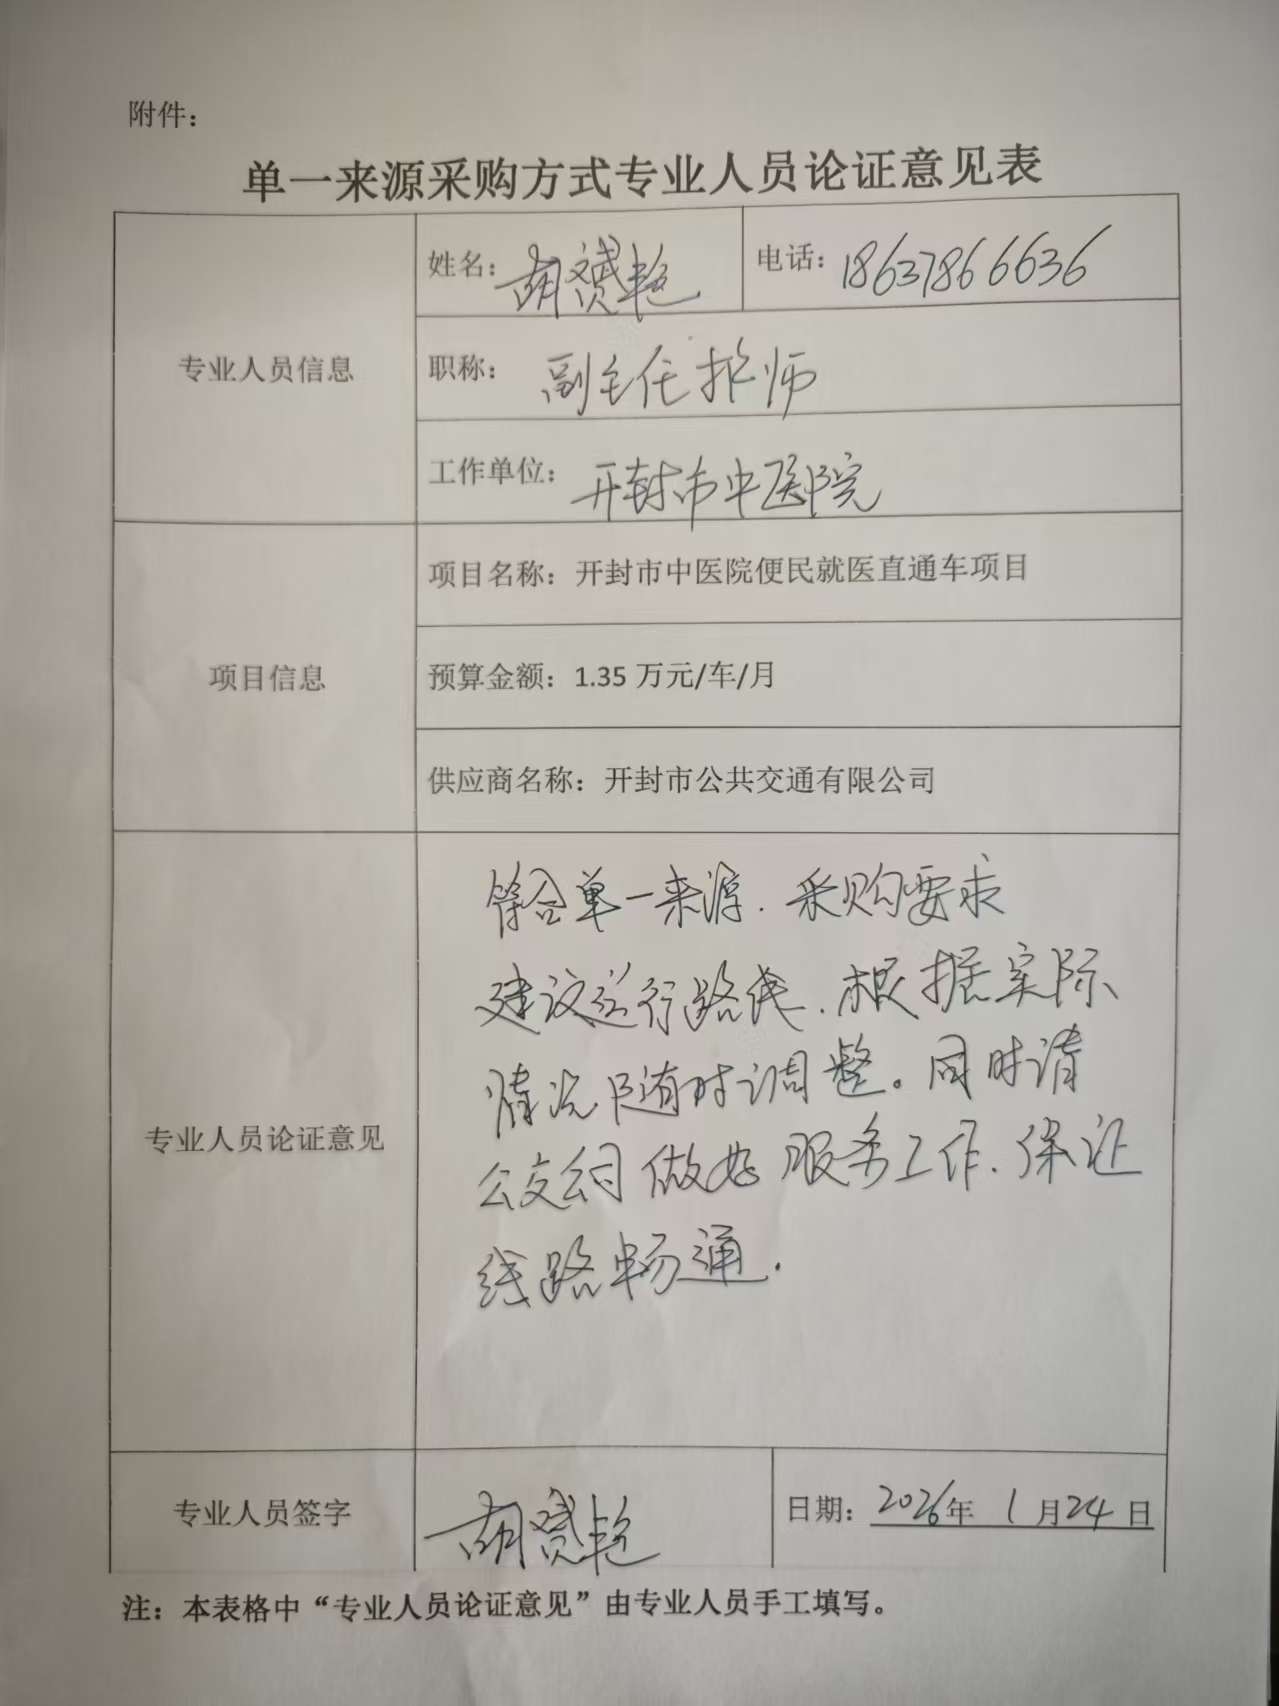 附件：
单一来源采购方式专业人员论证意见表
专业人员信息
姓名：胡赟艳
电话：18637866636
职称：副主任护师
工作单位：开封市中医院
项目信息
项目名称：开封市中医院便民就医直通车项目
预算金额：1.35 万元/车/月
供应商名称：开封市公共交通有限公司
专业人员论证意见
符合单一来源.采购要求
建议运行路线.根据实际
情况随时调整。同时请
公交公司做好服务工作.保证
线路畅通.
专业人员签字
胡赟艳
日期：2026年 1月24日
注：本表格中“专业人员论证意见”由专业人员手工填写。